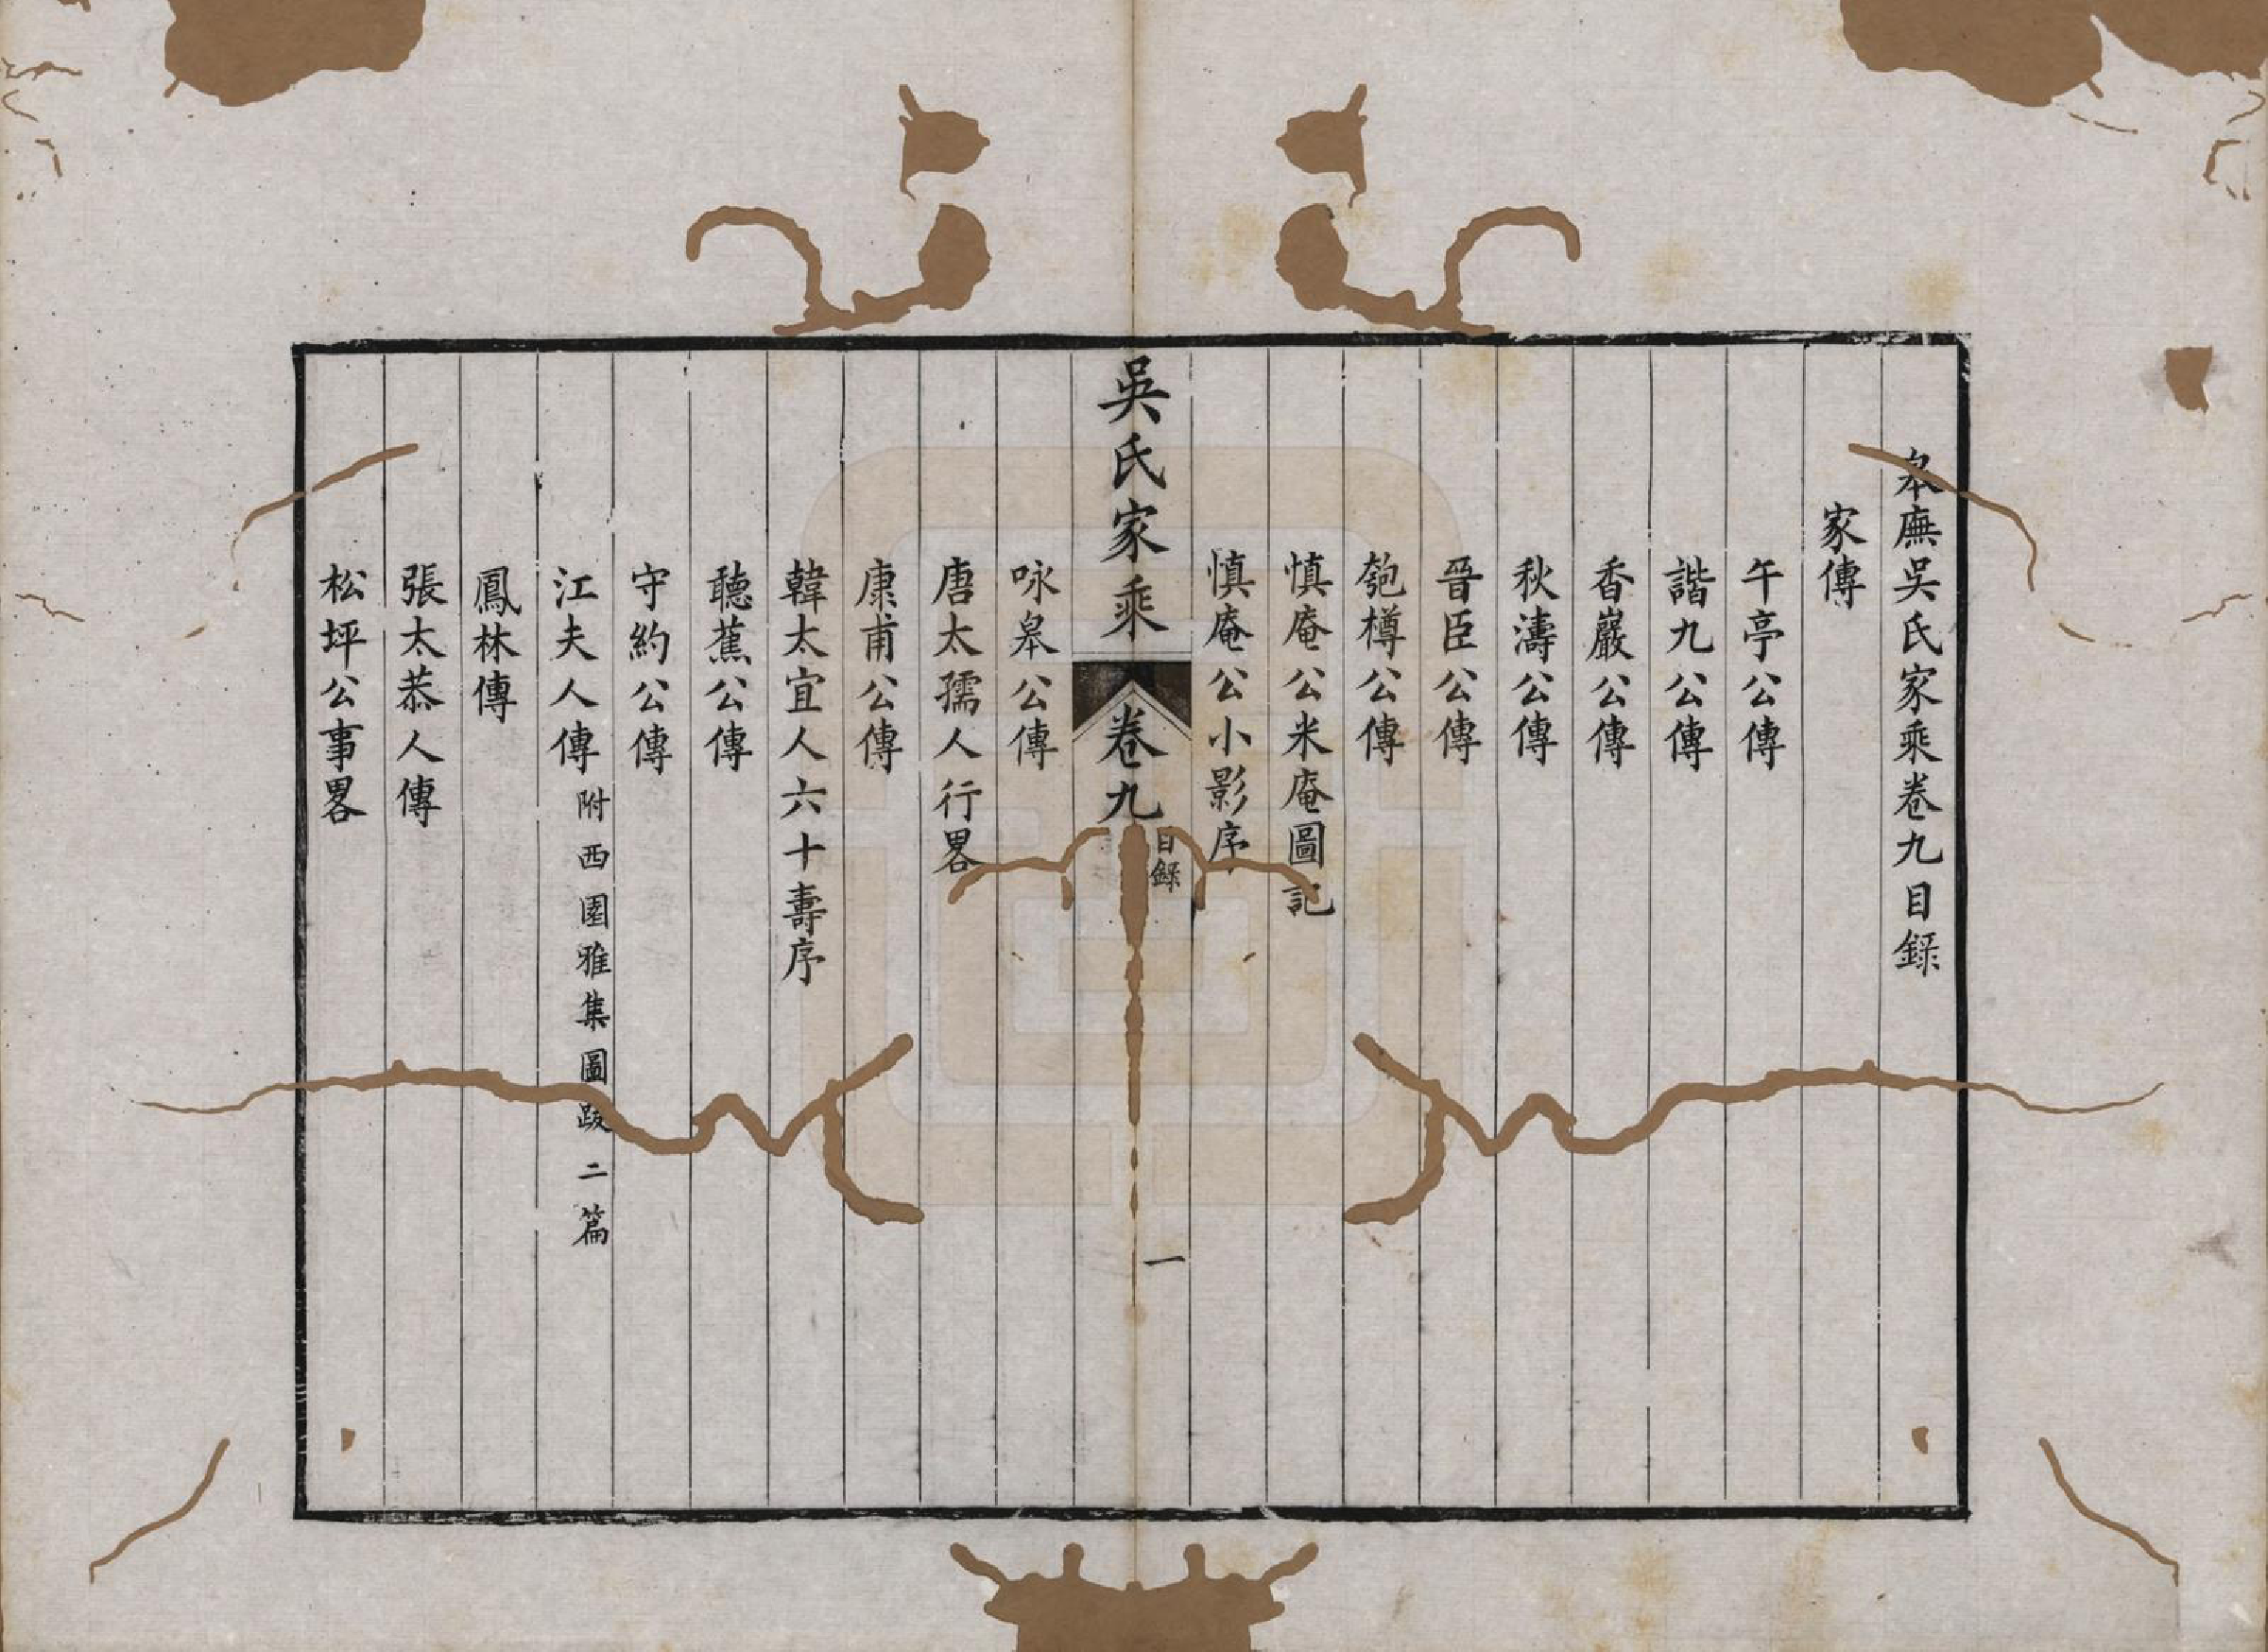 皋廡吳氏家乘卷九目錄
家傳
午亭公傳
諧九公傳
香巖公傳
秋濤公傳
晉臣公傳
匏樽公傳
慎庵公米庵圖記
慎庵公小影序
吳氏家乘 卷九 目錄 一
咏皋公傳
唐太孺人行畧
康甫公傳
韓太宜人六十壽序
聽蕉公傳
守約公傳
江夫人傳 附西園雅集圖跋二篇
鳳林傳
張太恭人傳
松坪公事畧